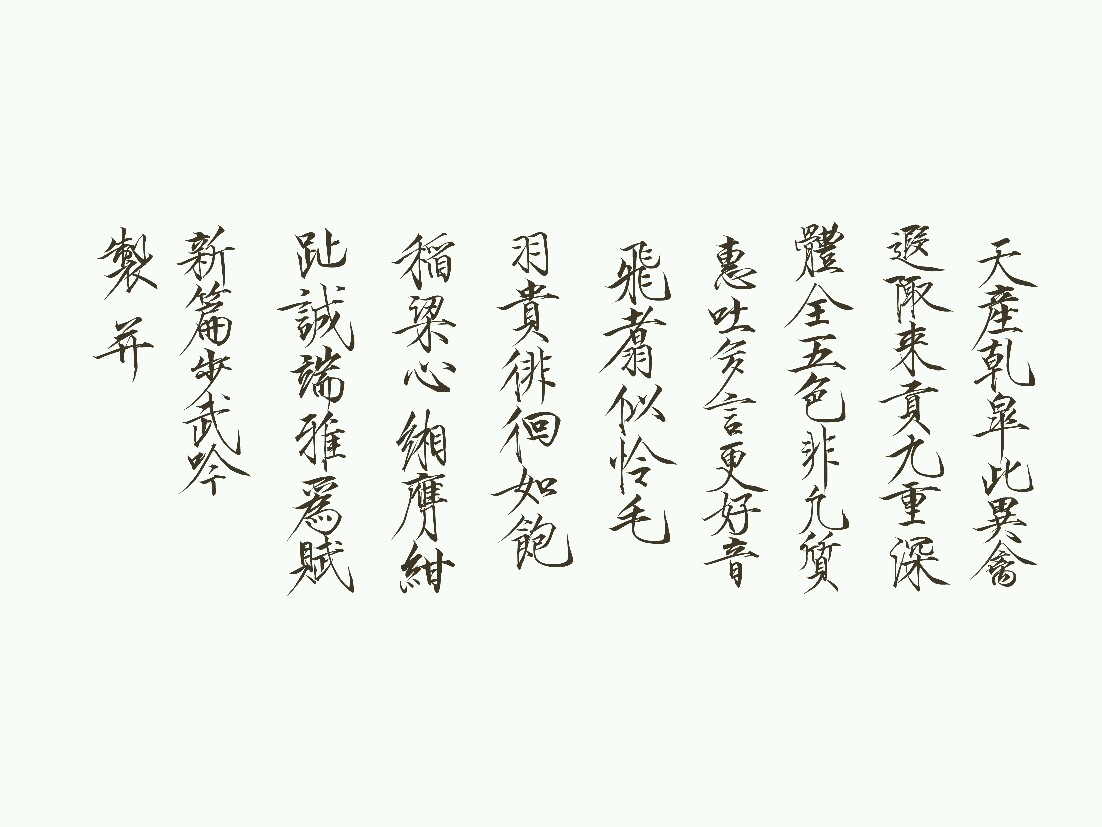 天產乾皐此異禽
遐陬來貢九重深
體全五色非凡質
惠吐多言更好音
飛翥似憐毛
羽貴徘徊如飽
稲梁心緗膺紺
趾誠端雅爲賦
新篇步武吟
製并